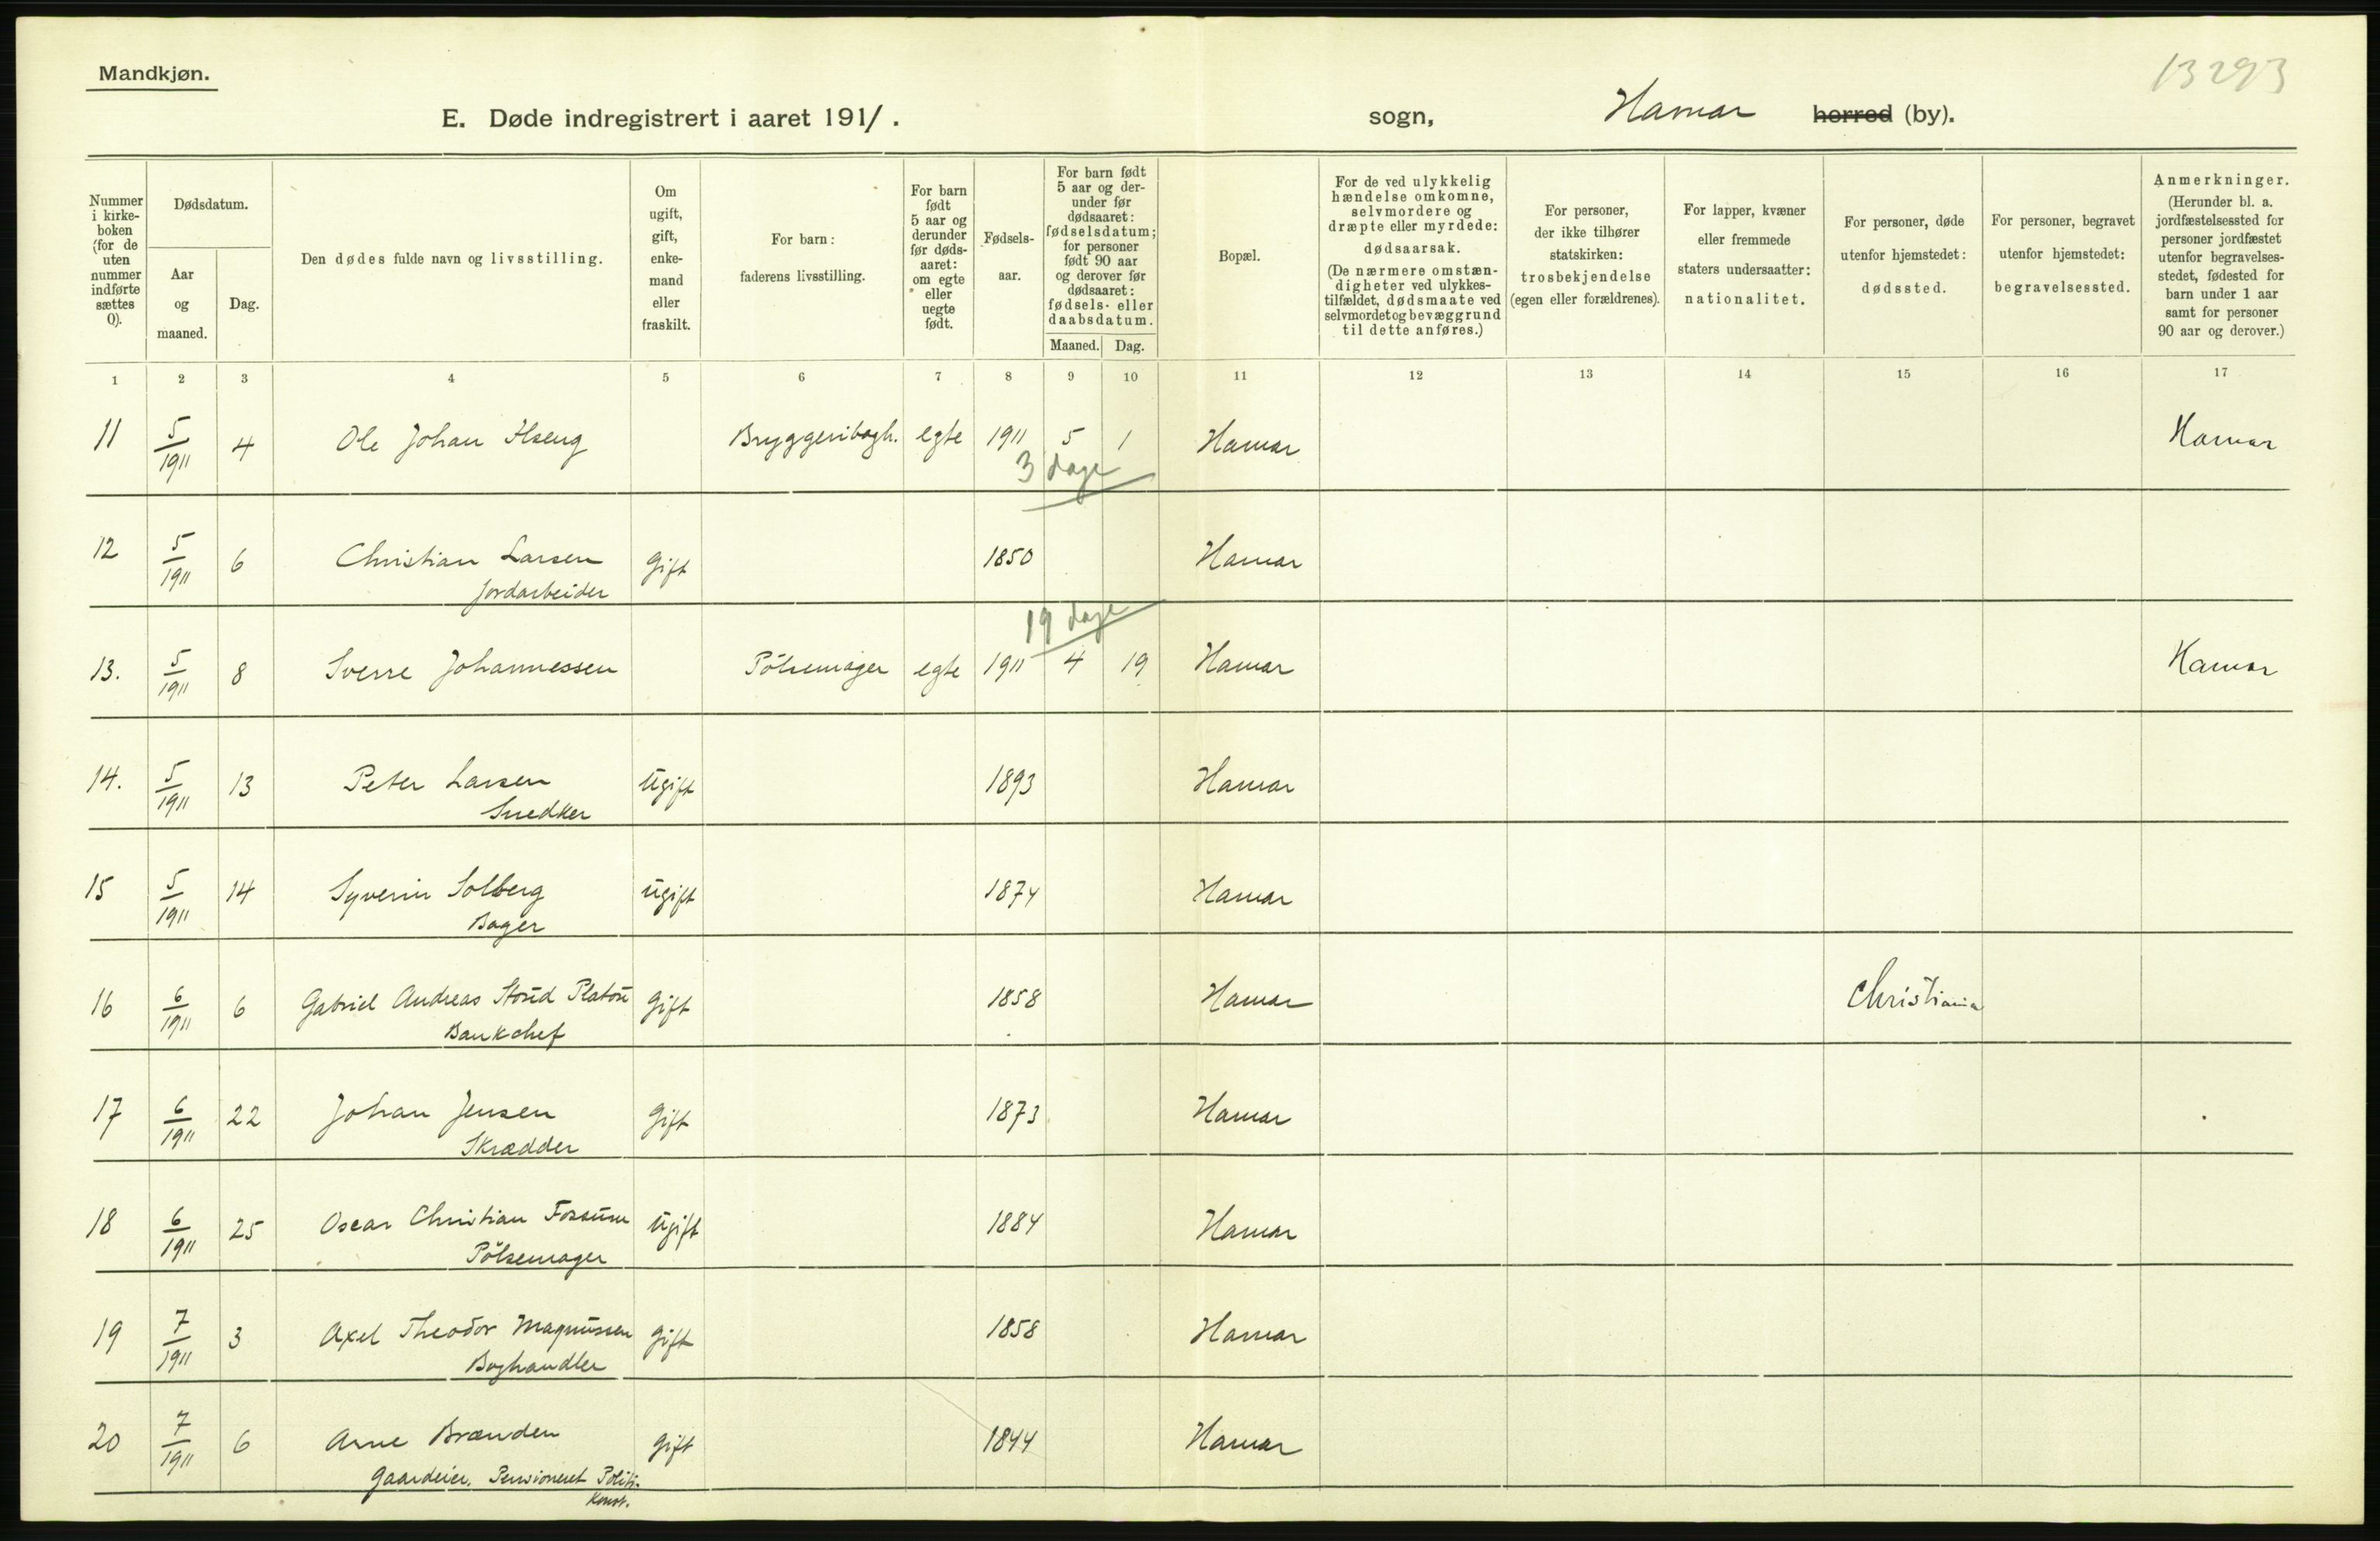 Mandkjøn.
13293
E. Døde indregistrert i aaret 1911. sogn, Hamar herred (by).
Nummer i kirkeboken (for de uten nummer indførte sættes 0).
Dødsdatum.
Aar og maaned.
Dag.
Den dødes fulde navn og livsstilling.
Om ugift, gift, enkemand eller fraskilt.
For barn: faderens livsstilling.
For barn født 5 aar og derunder før dødsaaret: om egte eller uegte født.
Fødselsaar.
For barn født 5 aar og derunder før dødsaaret: fødselsdatum; for personer født 90 aar og derover før dødsaaret: fødsels- eller daabsdatum.
Maaned. Dag.
Bopæl.
For de ved ulykkelig hændelse omkomne, selvmordere og dræpte eller myrdede: dødsaarsak. (De nærmere omstændigheter ved ulykkestilfældet, dødsmaate ved selvmordet og bevæggrund til dette anføres.)
For personer, der ikke tilhører statskirken: trosbekjendelse (egen eller forældrenes).
For lapper, kvæner eller fremmede staters undersaatter: nationalitet.
For personer, døde utenfor hjemstedet: dødssted.
For personer, begravet utenfor hjemstedet: begravelsessted.
Anmerkninger. (Herunder bl. a. jordfæstelsessted for personer jordfæstet utenfor begravelsesstedet, fødested for barn under 1 aar samt for personer 90 aar og derover.)
1 2 3 4 5 6 7 8 9 10 11 12 13 14 15 16 17
11 5/1911 4 Ole Johan Ilseng Bryggeribogh. egte 1911 5 1 Hamar Hamar
3 dage
12 5/1911 6 Christian Larsen Gift 1850 Hamar
Jordarbeider
19 dage
13. 5/1911 8 Sverre Johannessen Pölsemager egte 1911 4 19 Hamar Hamar
14. 5/1911 13 Peter Larsen Ugift 1893 Hamar
Snedker
15 5/1911 14 Syverin Solberg Ugift 1874 Hamar
Bager
16 6/1911 6 Gabriel Andreas Stoud Platou Gift 1858 Hamar Christiania
Bankchef
17 6/1911 22 Johan Jensen Gift 1873 Hamar
Skrædder
18 6/1911 25 Oscar Christian Fossum Ugift 1884 Hamar
Pölsemager
19 7/1911 3 Axel Theodor Magnussen Gift 1858 Hamar
Boghandler
20 7/1911 6 Arne Brænden Gift 1844 Hamar
Gaardeier. Pensioneret Politi-
Konst.